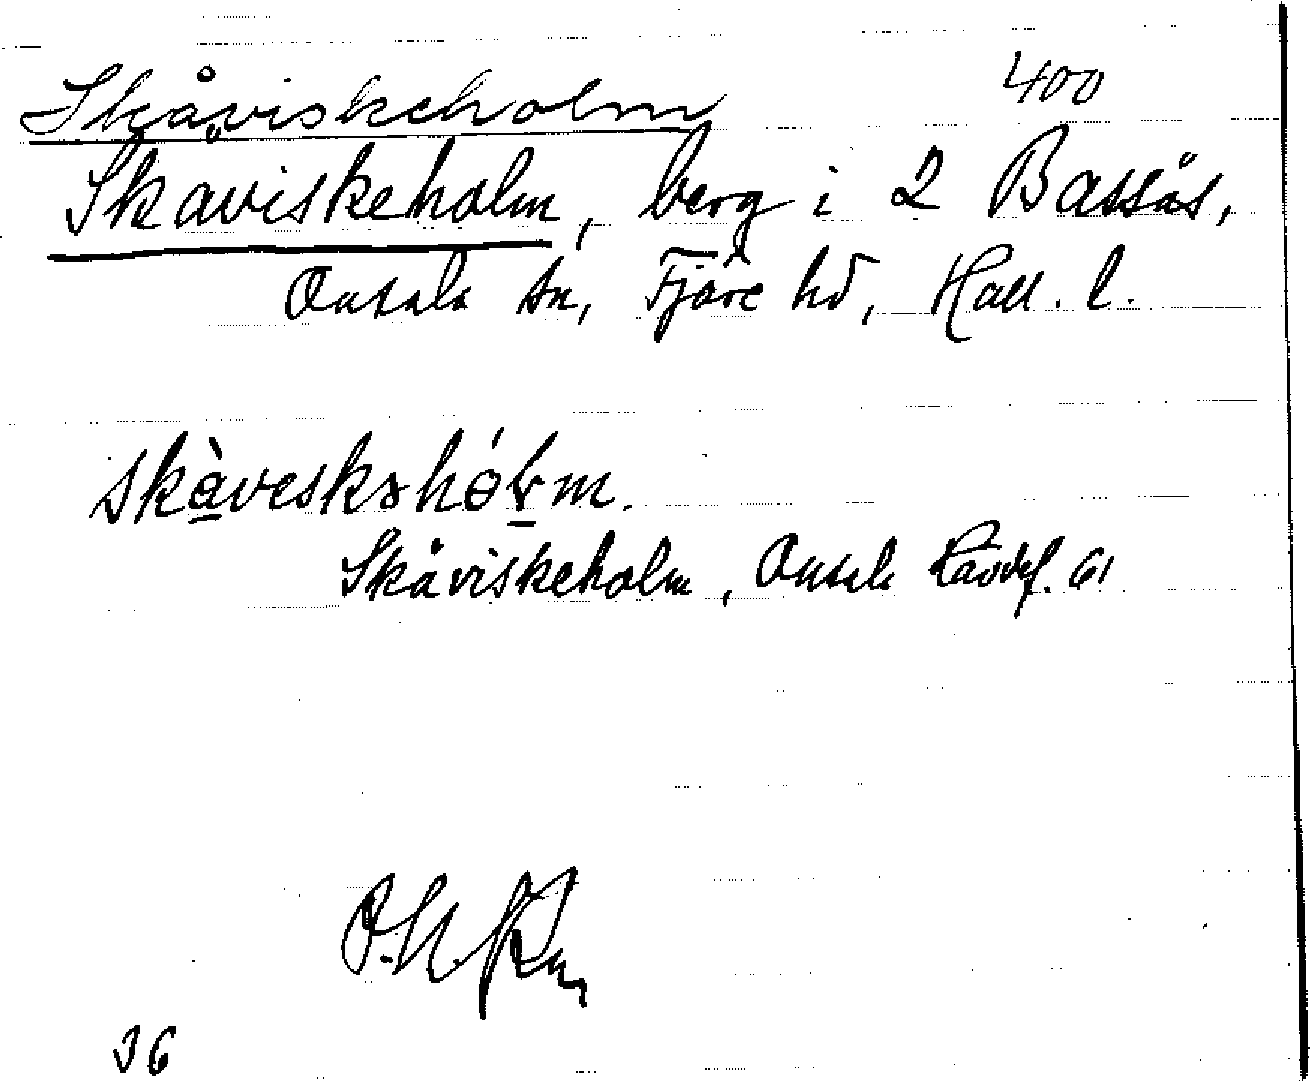 Skåviskeholm 400
Skåviskeholm, berg i 2 Bassås,
Onsala sn, Fjäre hd, Hall. l.
skàveskəhólm.
Skåviskeholm, Onsala 61
36